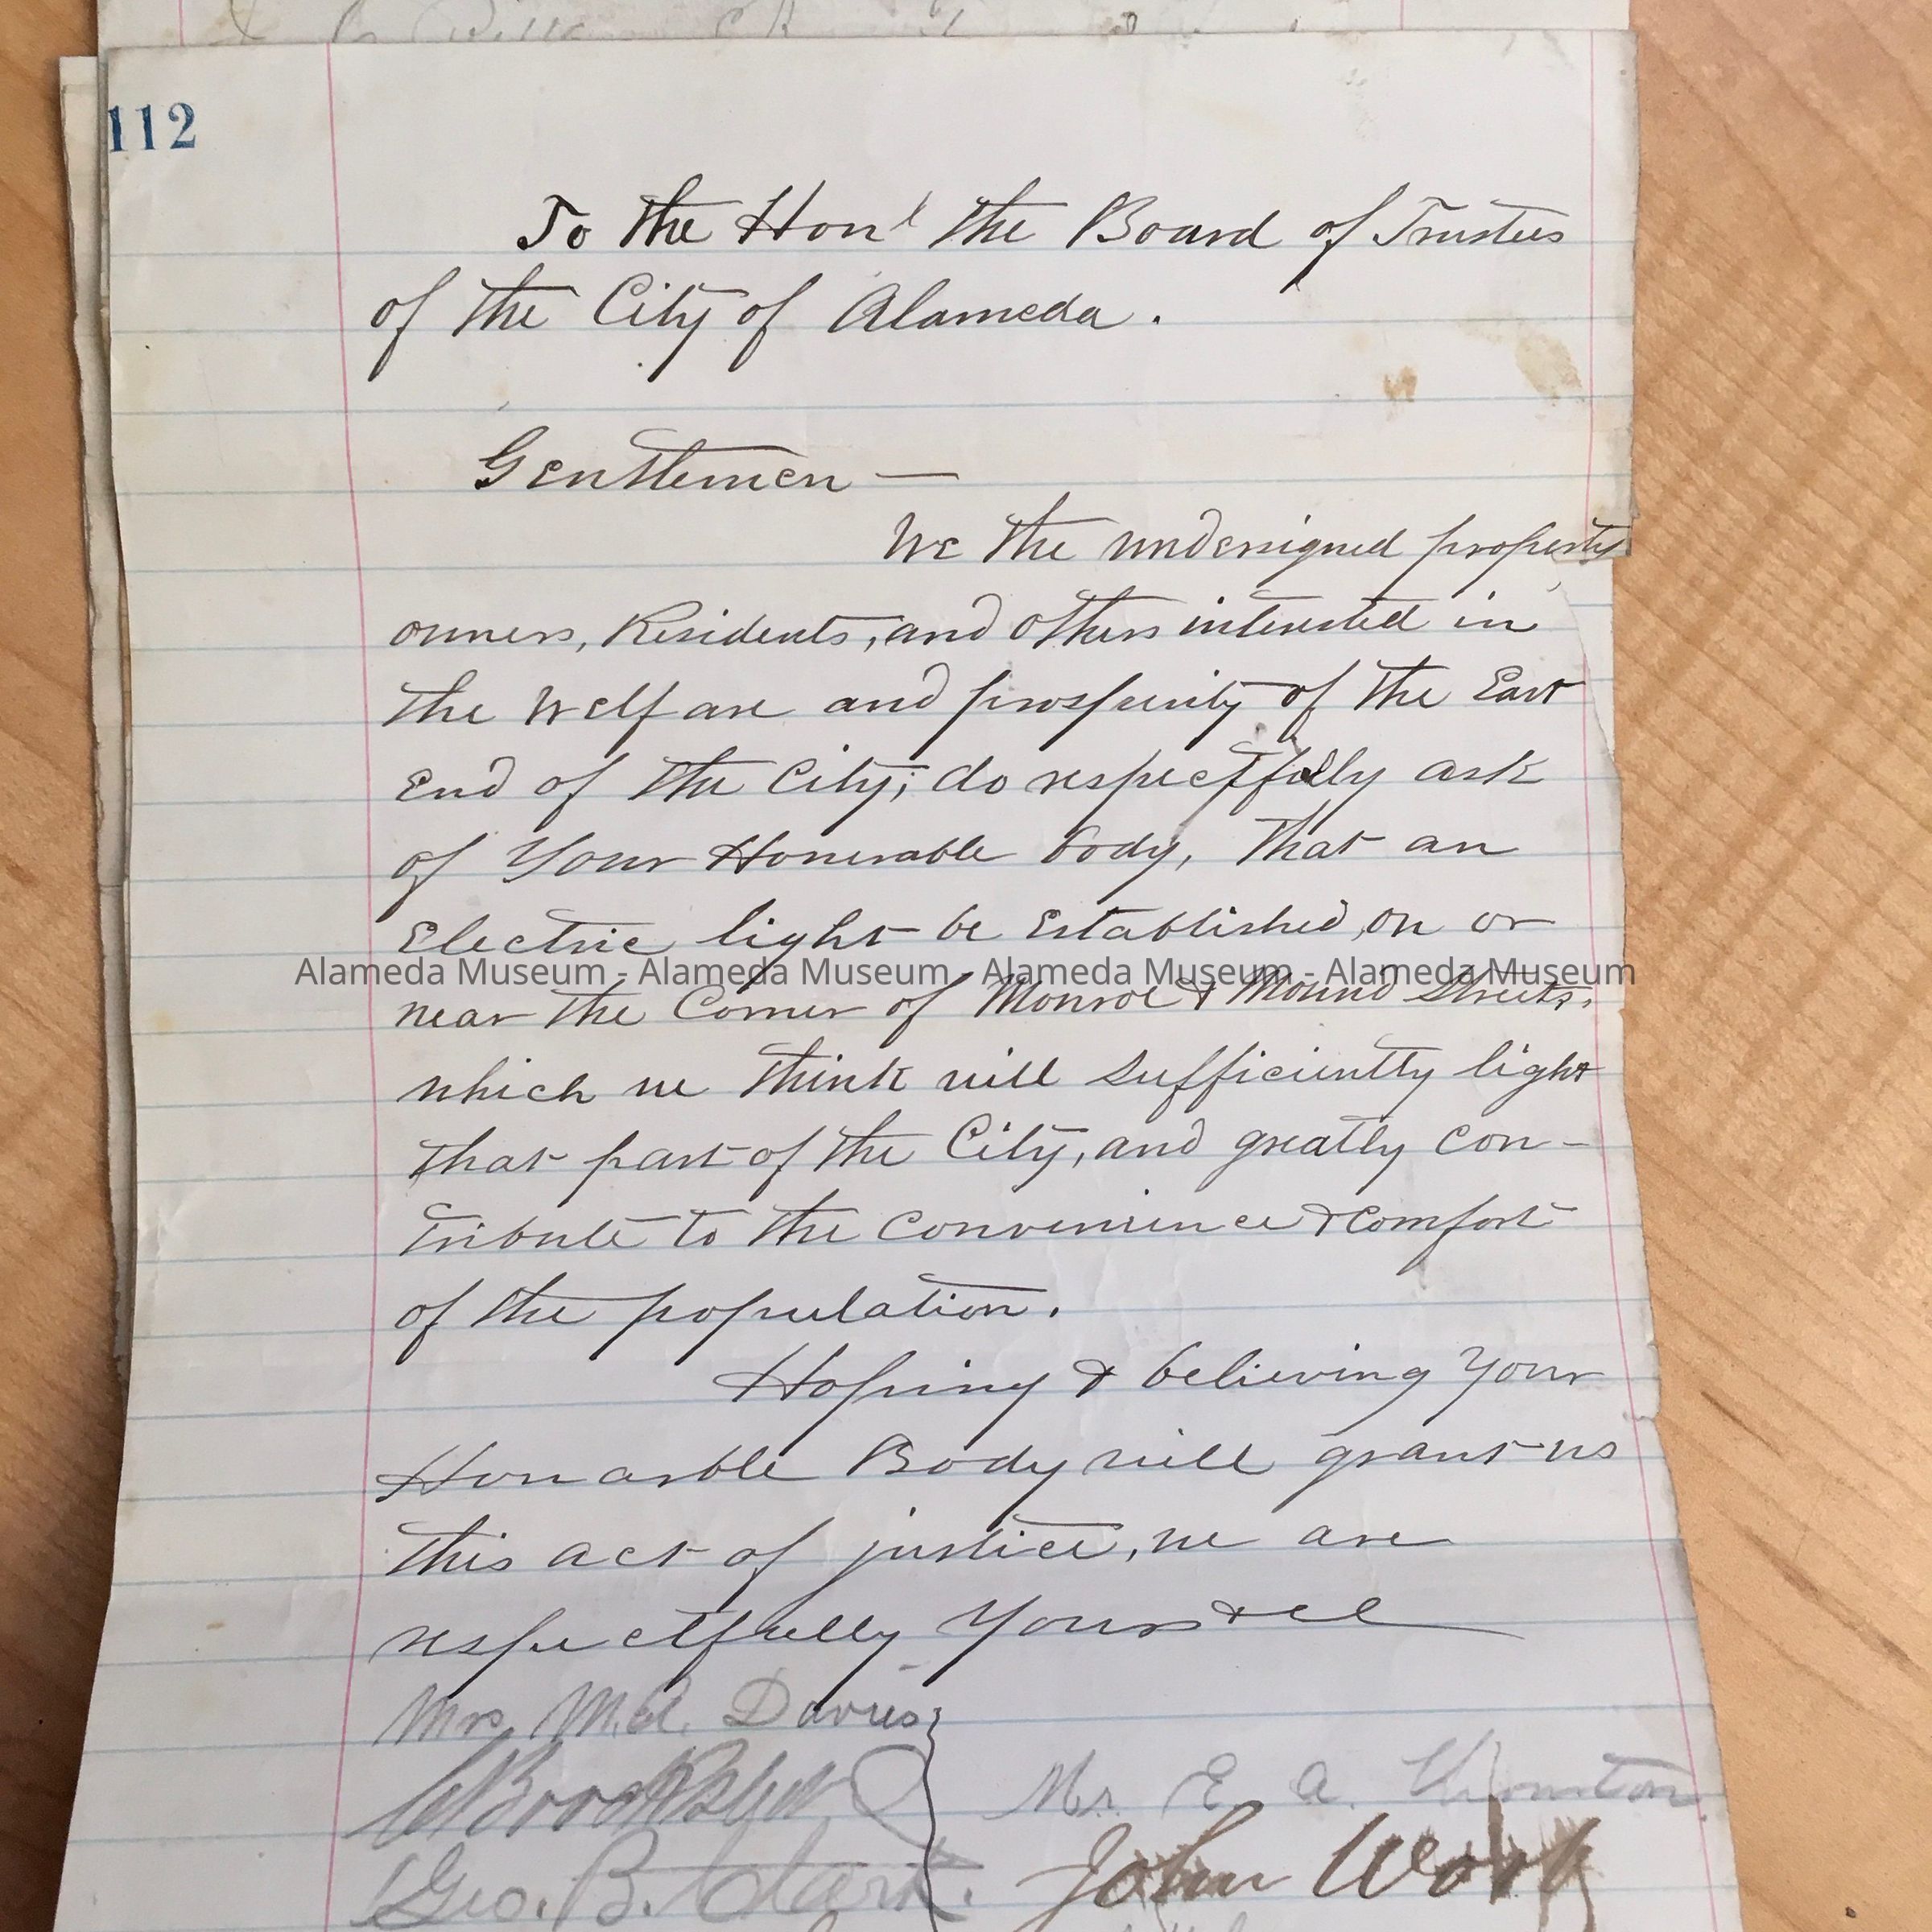 112
To the Honl the Board of Trustees
of the City of Alameda.
Gentlemen —
We the undersigned property
owners, Residents, and others interested in
the Welfare and prosperity of the East
End of the City; do respectfully ask
of Your Honerable body, that an
Electric light be Established, on or
Alameda Museum - Alameda Museum - Alameda Museum - Alameda Museum
near the Corner of Monroe & Mound Streets.
which we think will sufficiently light
that part of the City, and greatly con-
tribute to the convenience & comfort
of the population.
Hoping & believing Your
Honarble Body will grant us
this act of justice, we are
respectfully Yours &c
Mrs M.A. Davies
Mr. E. A.
Geo. B. Clark.
John Work